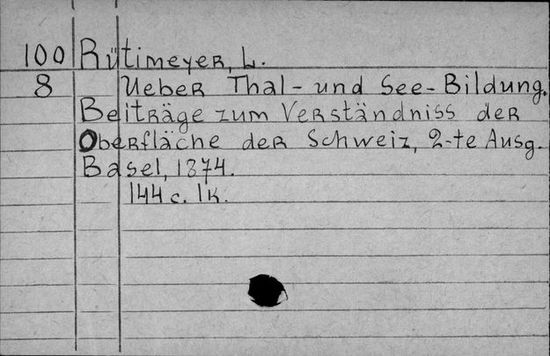 100 Rütimeyer, L.
8 Ueber Thal- und See-Bildung.
Beiträge zum Verständniss der
Oberfläche der Schweiz, 2-te Ausg.
Basel, 1874.
144 c. 1k.